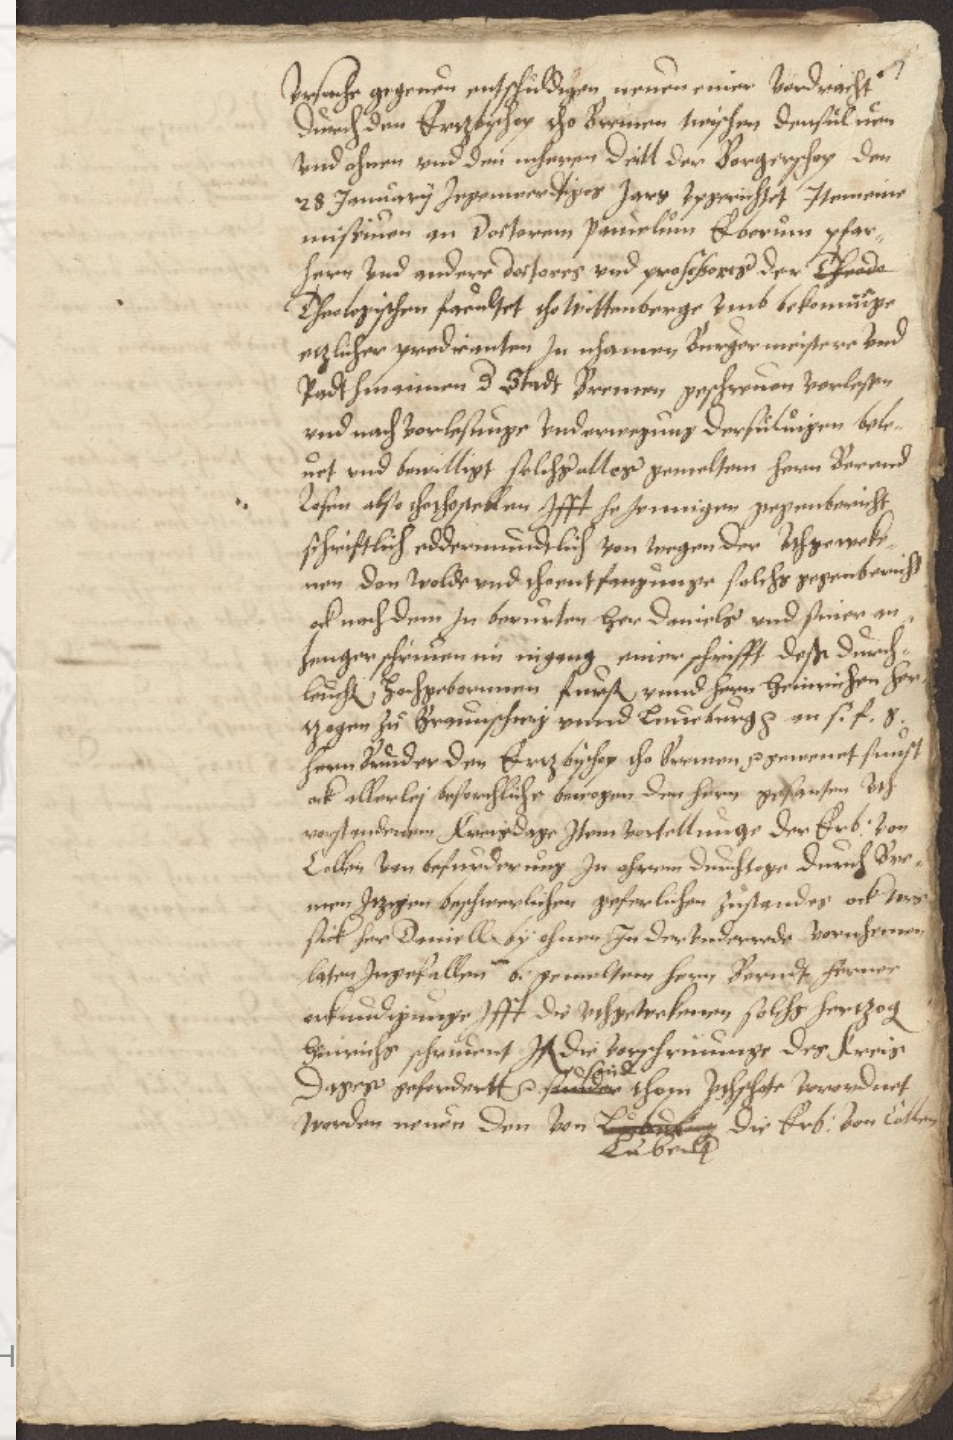 Ursache gegeuen entschuldigen neuen einer vordracht
durch den Ertzbischop tho Bremen twischen densuluen
vnd ohnen vnd den meheren deill der Borgerschop den
28 January Jegenwerdiges Jars vpgerichtet Item eine
missiuen an Doctorem Paulum Eberum pfar-
hern Vnd andere doctores vnd professores der Theodo
Theologischen facultet tho Wittenberge vmb bekominge
etzlicher predicanten In nhamen Burgermeistere vnd
Radthmannen d Stadt Bremen geschreuen vorlesen
vnd nach vorlesunge Vnd erwegung dersuluigen bele-
uet vnd bewilligt solchs alles gemeltem hern Berend
Losen also thothostellen Ifft he jennigen gegenbericht
schrifftlich edder mundtlich von wegen der Vthgeweke-
nen don wolde vnd tho entfangunge solchs gegenberichts
ock nach dem In berurten her Daniels vnd siner an-
henger schriuen im ingang einer schrifft dess durch-
leucht Hochgebornnen furst vnnd hern Heinrichen Her-
tzogen zu Braunschwig vnnd Luneburg an s. f. g.
hern Bruder den Ertzbischop tho Bremen gemenet sunst
ock allerlej besorchliche bewogen den hern gesanten vth
vorstandenem Kreisdage Item vortellunge der Erb: von
Collen von befurderung In ohrem durchtoge durch Bre-
men Itzigen beschwerlichen geferlichen zustandes ock wes
sick her Daniell by ohnen In der vnderrede vornhemen
laten Ingefallen b. gemeltem hern Berndt ferner
erkundigunge Ifft die vthgewekenen solchs hertzog
Heinrichs schriuent Ist die vorschriuunge des Kreis
dages gefordertt sunder sind thom vthschote verordnet
worden neuen den von Lubeck die Erb: von Collen
Lubeck